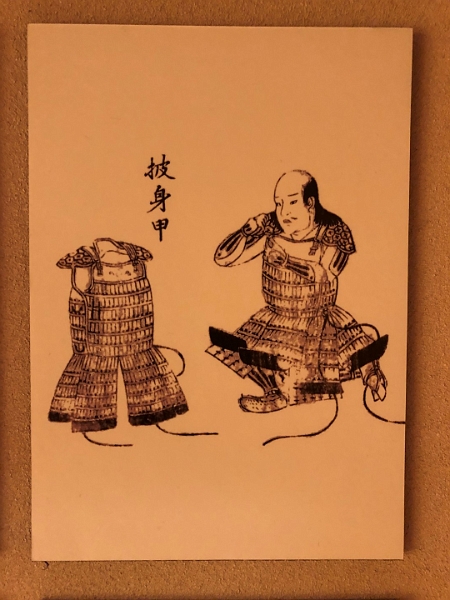 披身甲